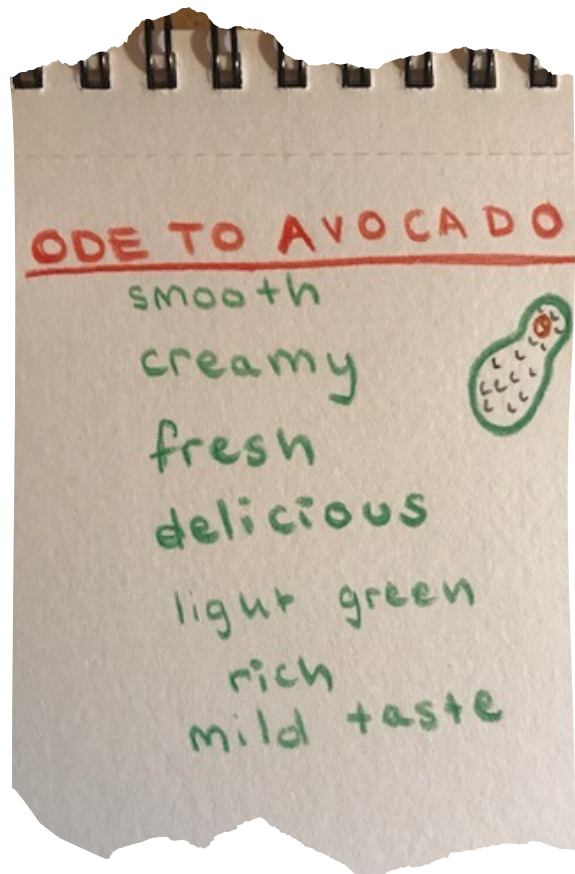 ODE TO AVOCADO
smooth
creamy
fresh
delicious
light green
rich
mild taste